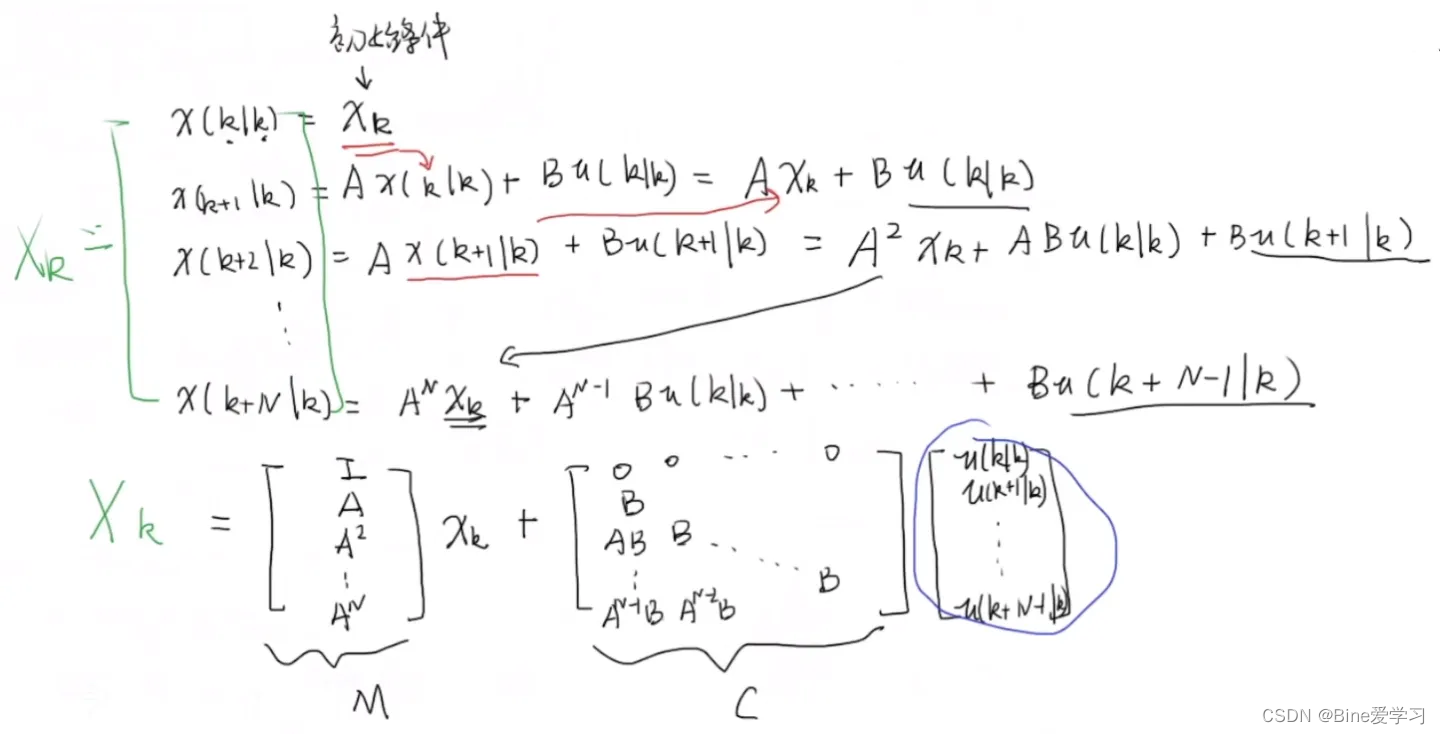 初始条件
↓
x(k|k) = x_k
x(k+1|k) = A x(k|k) + B u(k|k) = A x_k + B u(k|k)
X_k = x(k+2|k) = A x(k+1|k) + B u(k+1|k) = A² x_k + A B u(k|k) + B u(k+1|k)
⋮
x(k+N|k) = A^N x_k + A^{N-1} B u(k|k) + ······ + B u(k+N-1|k)
X_k = [ I A A² ⋮ A^N ] x_k + [ 0 0 ··· 0
B
AB B ··· 
⋮ B
A^{N-1}B A^{N-2}B ] [ u(k|k)
u(k+1|k)
⋮
u(k+N-1|k) ]
M C
CSDN @Bine爱学习